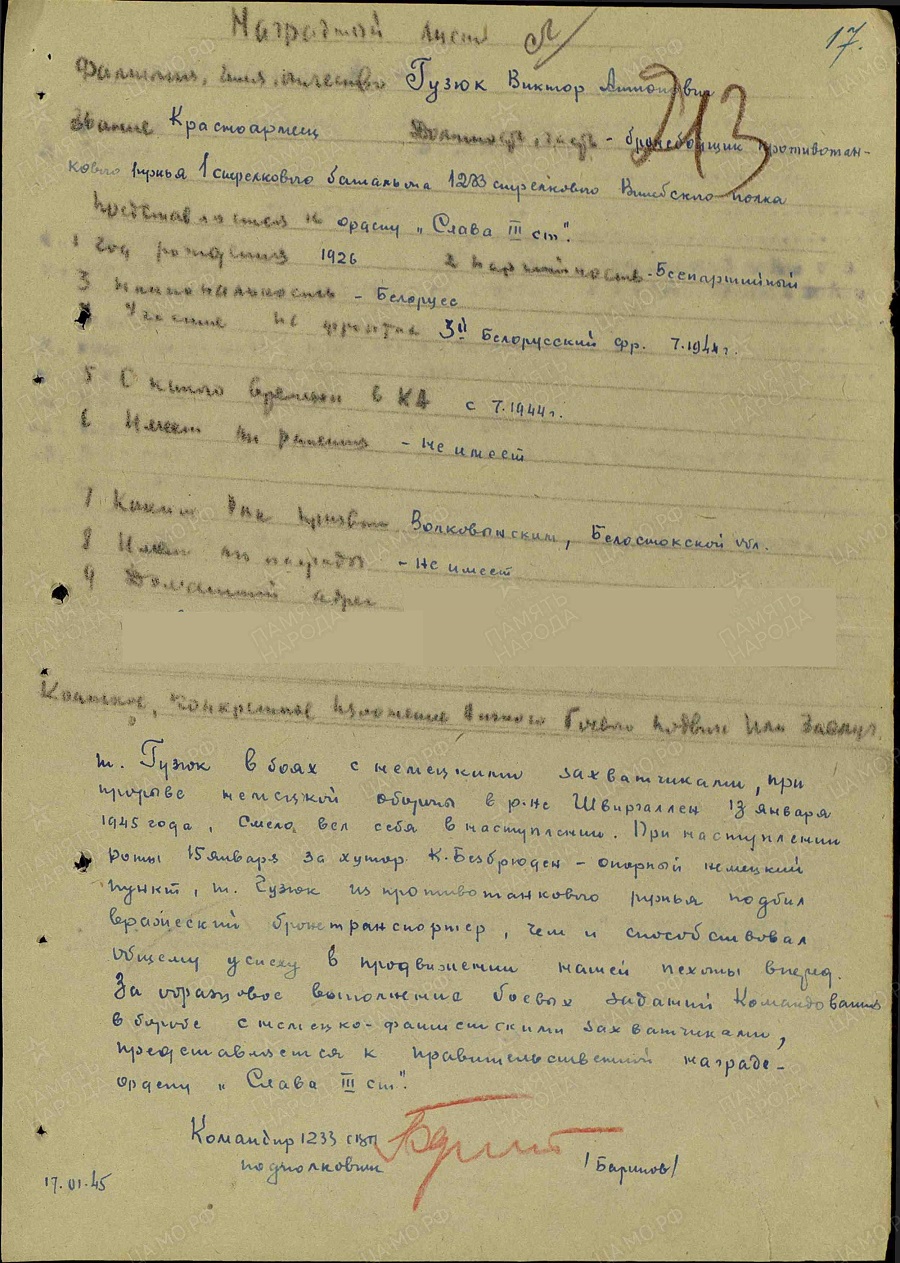 17.
Наградной лист
Фамилия, имя, отчество Гузюк Виктор Антонович
213
Звание Красноармеец Должность, часть - бронебойщик противотан-
кового ружья 1 стрелкового батальона 1233 стрелкового Витебского полка
Представляется к ордену „Слава III ст".
1 Год рождения 1926 2 Партийность - Беспартийный
3 Национальность - Белорусс
4 Участие на фронтах 3й Белорусский фр. 7.1944г.
5 С какого времени в КА с 7.1944г.
6 Имеет ли ранения - Не имеет
7 Каким РВК призван Волковыским, Белостокской обл.
8 Имеет ли награды - Не имеет
9 Домашний адрес
Краткое, конкретное изложение личного боевого подвига или заслуг.
т. Гузюк в боях с немецкими захватчиками, при
прорыве немецкой обороны в р-не Швиргаллен 13 января
1945 года, смело вел себя в наступлении. При наступлении
роты 15 января за хутор К. Безбрюден - опорный немецкий
пункт, т. Гузюк из противотанкового ружья подбил
вражеский бронетранспортер, чем и способствовал
общему успеху в продвижении нашей пехоты вперед.
За образцовое выполнение боевых заданий Командования
в борьбе с немецко-фашистскими захватчиками,
представляется к правительственной награде -
ордену „Слава III ст".
Командир 1233 сп
подполковник /Баринов/
17.01.45